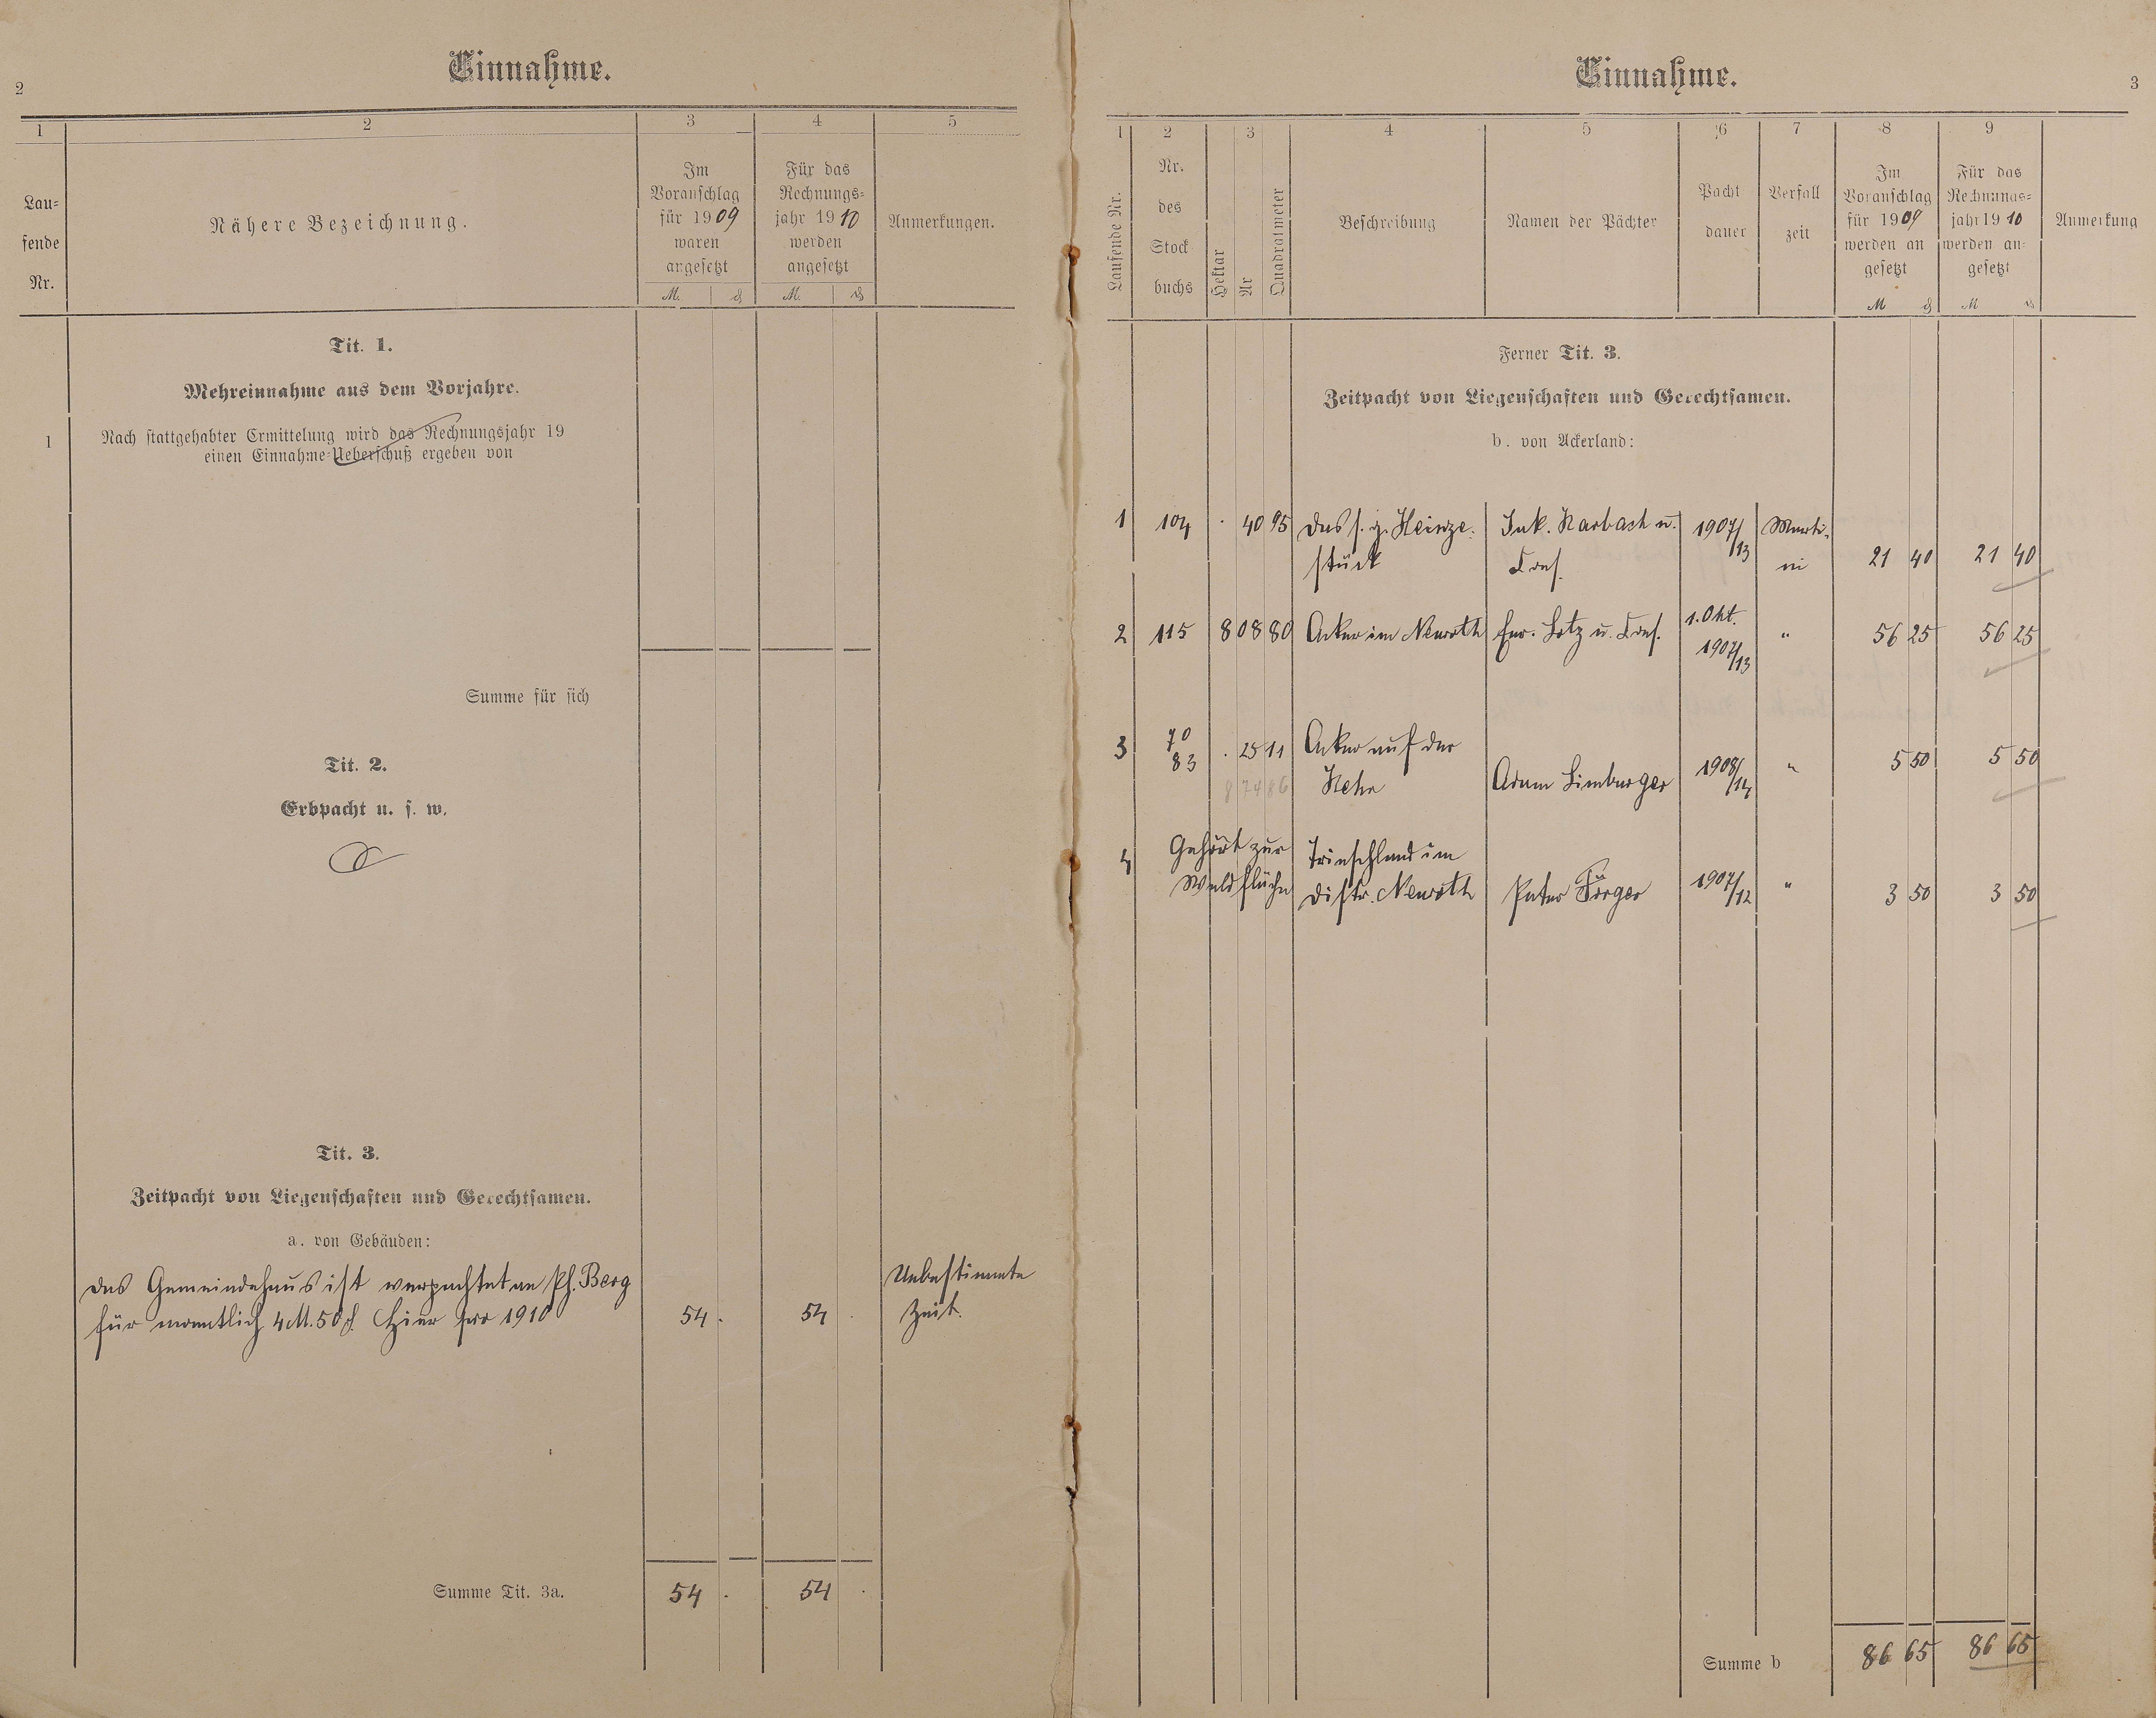 2
Einnahme.
1 2 3 4 5
Lau-
fende
Nr.
Nähere Bezeichnung.
Im
Voranschlag
für 1909
waren
angesetzt
M. ₰
Für das
Rechnungs-
jahr 1910
werden
angesetzt
M. ₰
Anmerkungen.
Tit. 1.
Mehreinnahme aus dem Vorjahre.
1 Nach stattgehabter Ermittelung wird das Rechnungsjahr 19
einen Einnahme-Ueberschuß ergeben von
Summe für sich
Tit. 2.
Erbpacht u. s. w.
Tit. 3.
Zeitpacht von Liegenschaften und Gerechtsamen.
a. von Gebäuden:
Das Gemeindehaus ist verpachtet an Ph. Berg Unbestimmte
für monatlich 4 M. 50 ₰. Hier pro 1910 54 . 54 . Zeit.
Summe Tit. 3a. 54 . 54 .
Einnahme.
3
1 2 3 4 5 6 7 8 9
Laufende Nr.
Nr.
des
Stock
buchs
Hektar
Ar
Quadratmeter
Beschreibung
Namen der Pächter
Pacht
dauer
Verfall
zeit
Im
Voranschlag
für 1909
werden an
gesetzt
M ₰
Für das
Rechnungs-
jahr 1910
werden an-
gesetzt
M ₰
Anmerkung
Ferner Tit. 3.
Zeitpacht von Liegenschaften und Gerechtsamen.
b. von Ackerland:
1 104 . 40 95 Das s. g. Heinze- Jak. Karbach u. 1907/13 Marti-
stück Cons. ni 21 40 21 40
2 115 8 08 80 Acker im Neuroth Lotz u. Cons. 1. Okt. " 56 25 56 25
1907/13
3 70 . 25 11 Acker auf der
83 8 74 86 Hehr Adam Limburger 1908/14 " 5 50 5 50
4 Gehört zur Trieschland im
Waldfläche Distr. Neuroth Peter Görger 1907/12 " 3 50 3 50
Summe b 86 65 86 65